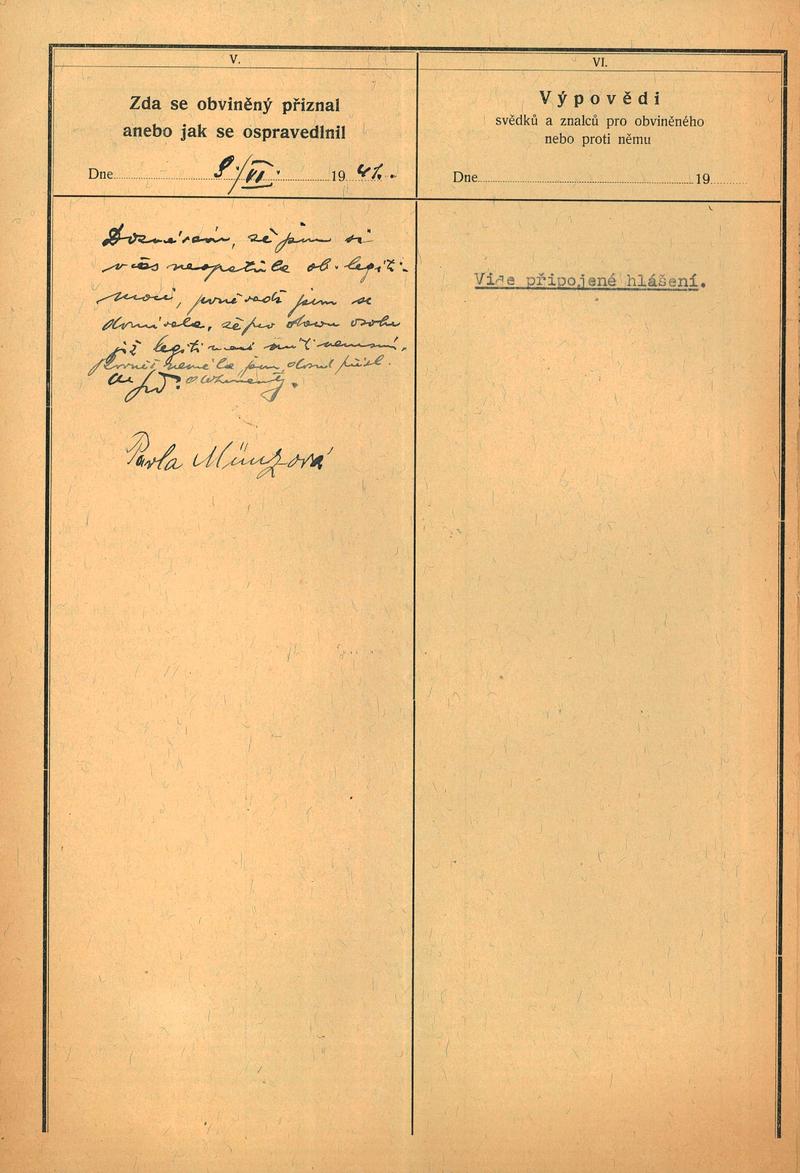 V.
Zda se obviněný přiznal
anebo jak se ospravedlnil
Dne 9./VI. 1941.
Doznávám, že jsem si
včas neopatřila ob. legiti-
maci, jsem se
domnívala, že pro osobu
již legitimaci míti nemusí,
neměla jsem
Pavla Münzová
VI.
Výpovědi
svědků a znalců pro obviněného
nebo proti němu
Dne 19
Viz připojené hlášení.